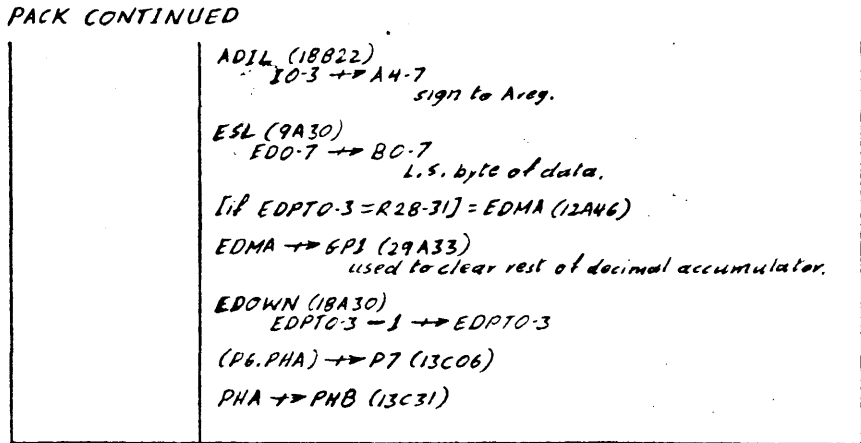 PACK CONTINUED
ADIL (18B22)
I0-3 +→ A4-7
sign to A reg.
ESL (9A30)
ED0-7 +→ B0-7
L.S. byte of data.
[if EDPT0-3 = R28-31] = EDMA (12A46)
EDMA +→ GP1 (29A33)
used to clear rest of decimal accumulator.
EDOWN (18A30)
EDPT0-3 - 1 +→ EDPT0-3
(P6.PHA) +→ P7 (13C06)
PHA +→ PHB (13C31)